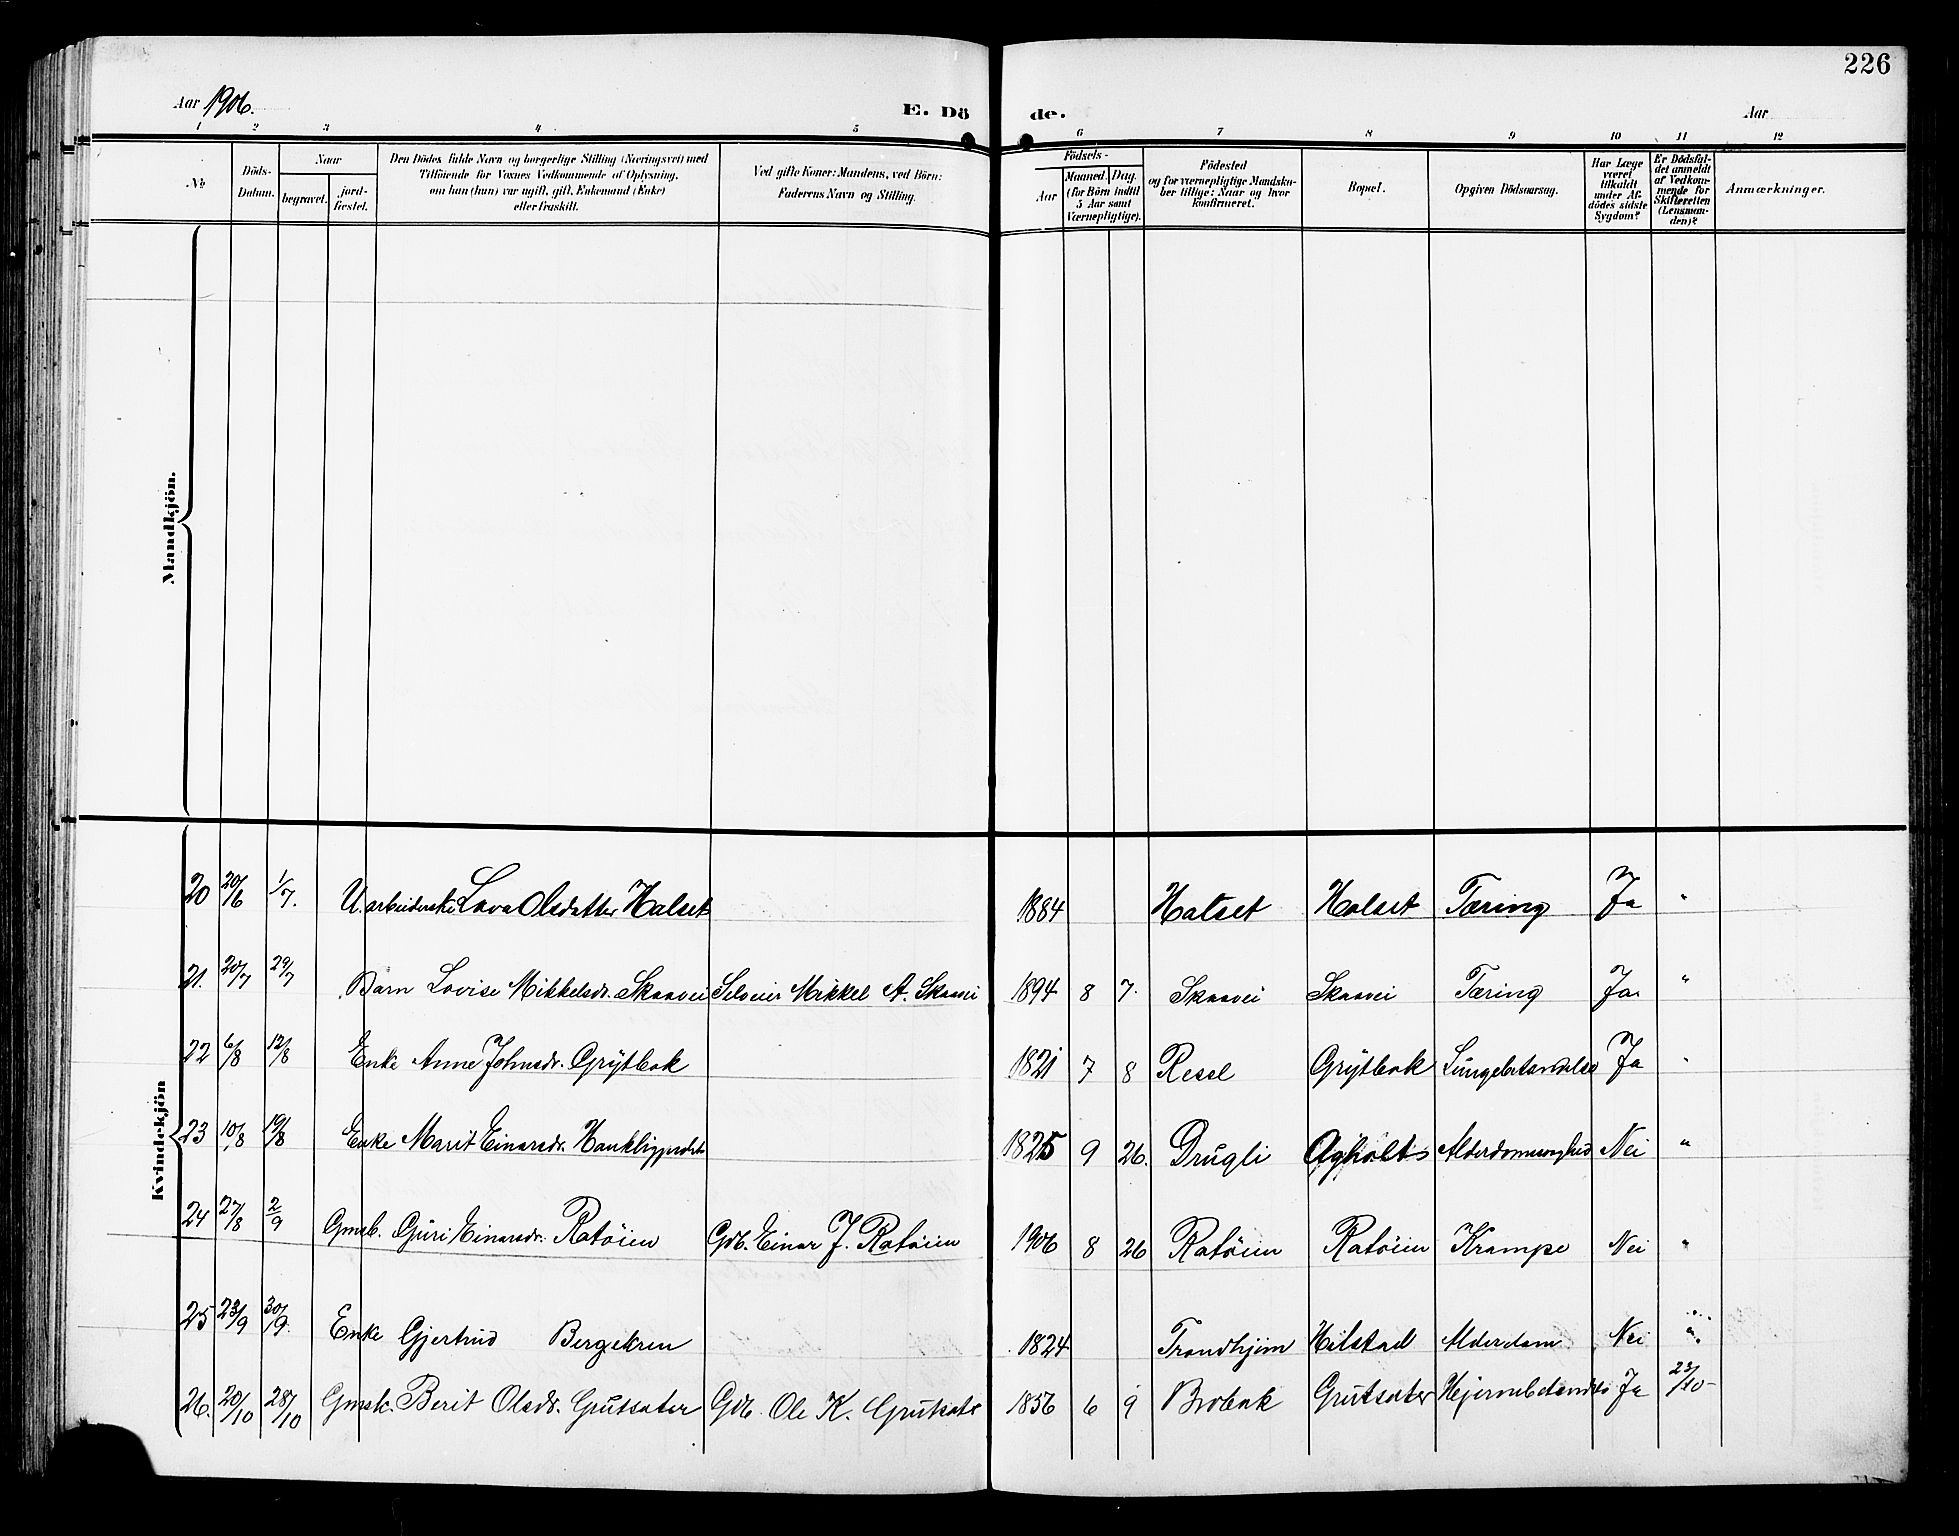 226
Aar 1906.
E. Dö de.
Aar
1 2 3 4 5 6 7 8 9 10 11 12
No
Döds-Datum.
Naar
begravet.
jord-fæstet.
Den Dödes fulde Navn og borgerlige Stilling (Næringsvei) med
Tilföiende for Voxnes Vedkommende af Oplysning,
om han (hun) var ugift, gift, Enkemand (Enke)
eller fraskilt.
Ved gifte Koner: Mandens, ved Börn:
Faderens Navn og Stilling.
Födsels-
Aar
Maaned. Dag.
(for Börn indtil
5 Aar samt
Værnepligtige).
Födested
og for værnepligtige Mandska-
ber tillige: Naar og hvor
konfirmeret.
Bopæl.
Opgiven Dödsaarsag.
Har Læge
været
tilkaldt
under Af-
dödes sidste
Sygdom?
Er Dödsfal-
det anmeldt
af Vedkom-
mende for
Skifteretten
(Lensman-
den)?
Anmærkninger.
Mandkjön.
Kvindekjön
20 20/6 1/7. U. arbeiderske Lava Olsdatter Halset 1884 Halset Halset Tæring Ja "
21. 20/7 29/7 Barn Lovise Mikkelsdr. Skaavei Selveier Mikkel A. Skaavei 1894 8 7. Skaavei Skaavei Tæring Ja. "
22 6/8 12/8 Enke Anne Johnsdr. Grytbak 1821 7 8 Resel Grytbak Lungebetændelse Ja "
23 10/8 19/8 Enke Marit Einarsdr. 1825 9 26. Drugli Agholt Nei "
24 27/8 2/9 Gmsb. Guri Einarsdr. Ratöien Gdb. Einar J. Ratöien 1906 8 26 Ratöien Ratöien Krampe Nei "
25 23/9 30/9. Enke Gjertrud Bergekren 1824 Trondhjem Hilstad Alderdom Nei "
26. 20/10 28/10 Gmsk. Berit Olsdr. Grutsater Gdb. Ole K. Grutsater 1856 6 9 Brobak Grutsater Hjernebetændelse Ja 23/10-